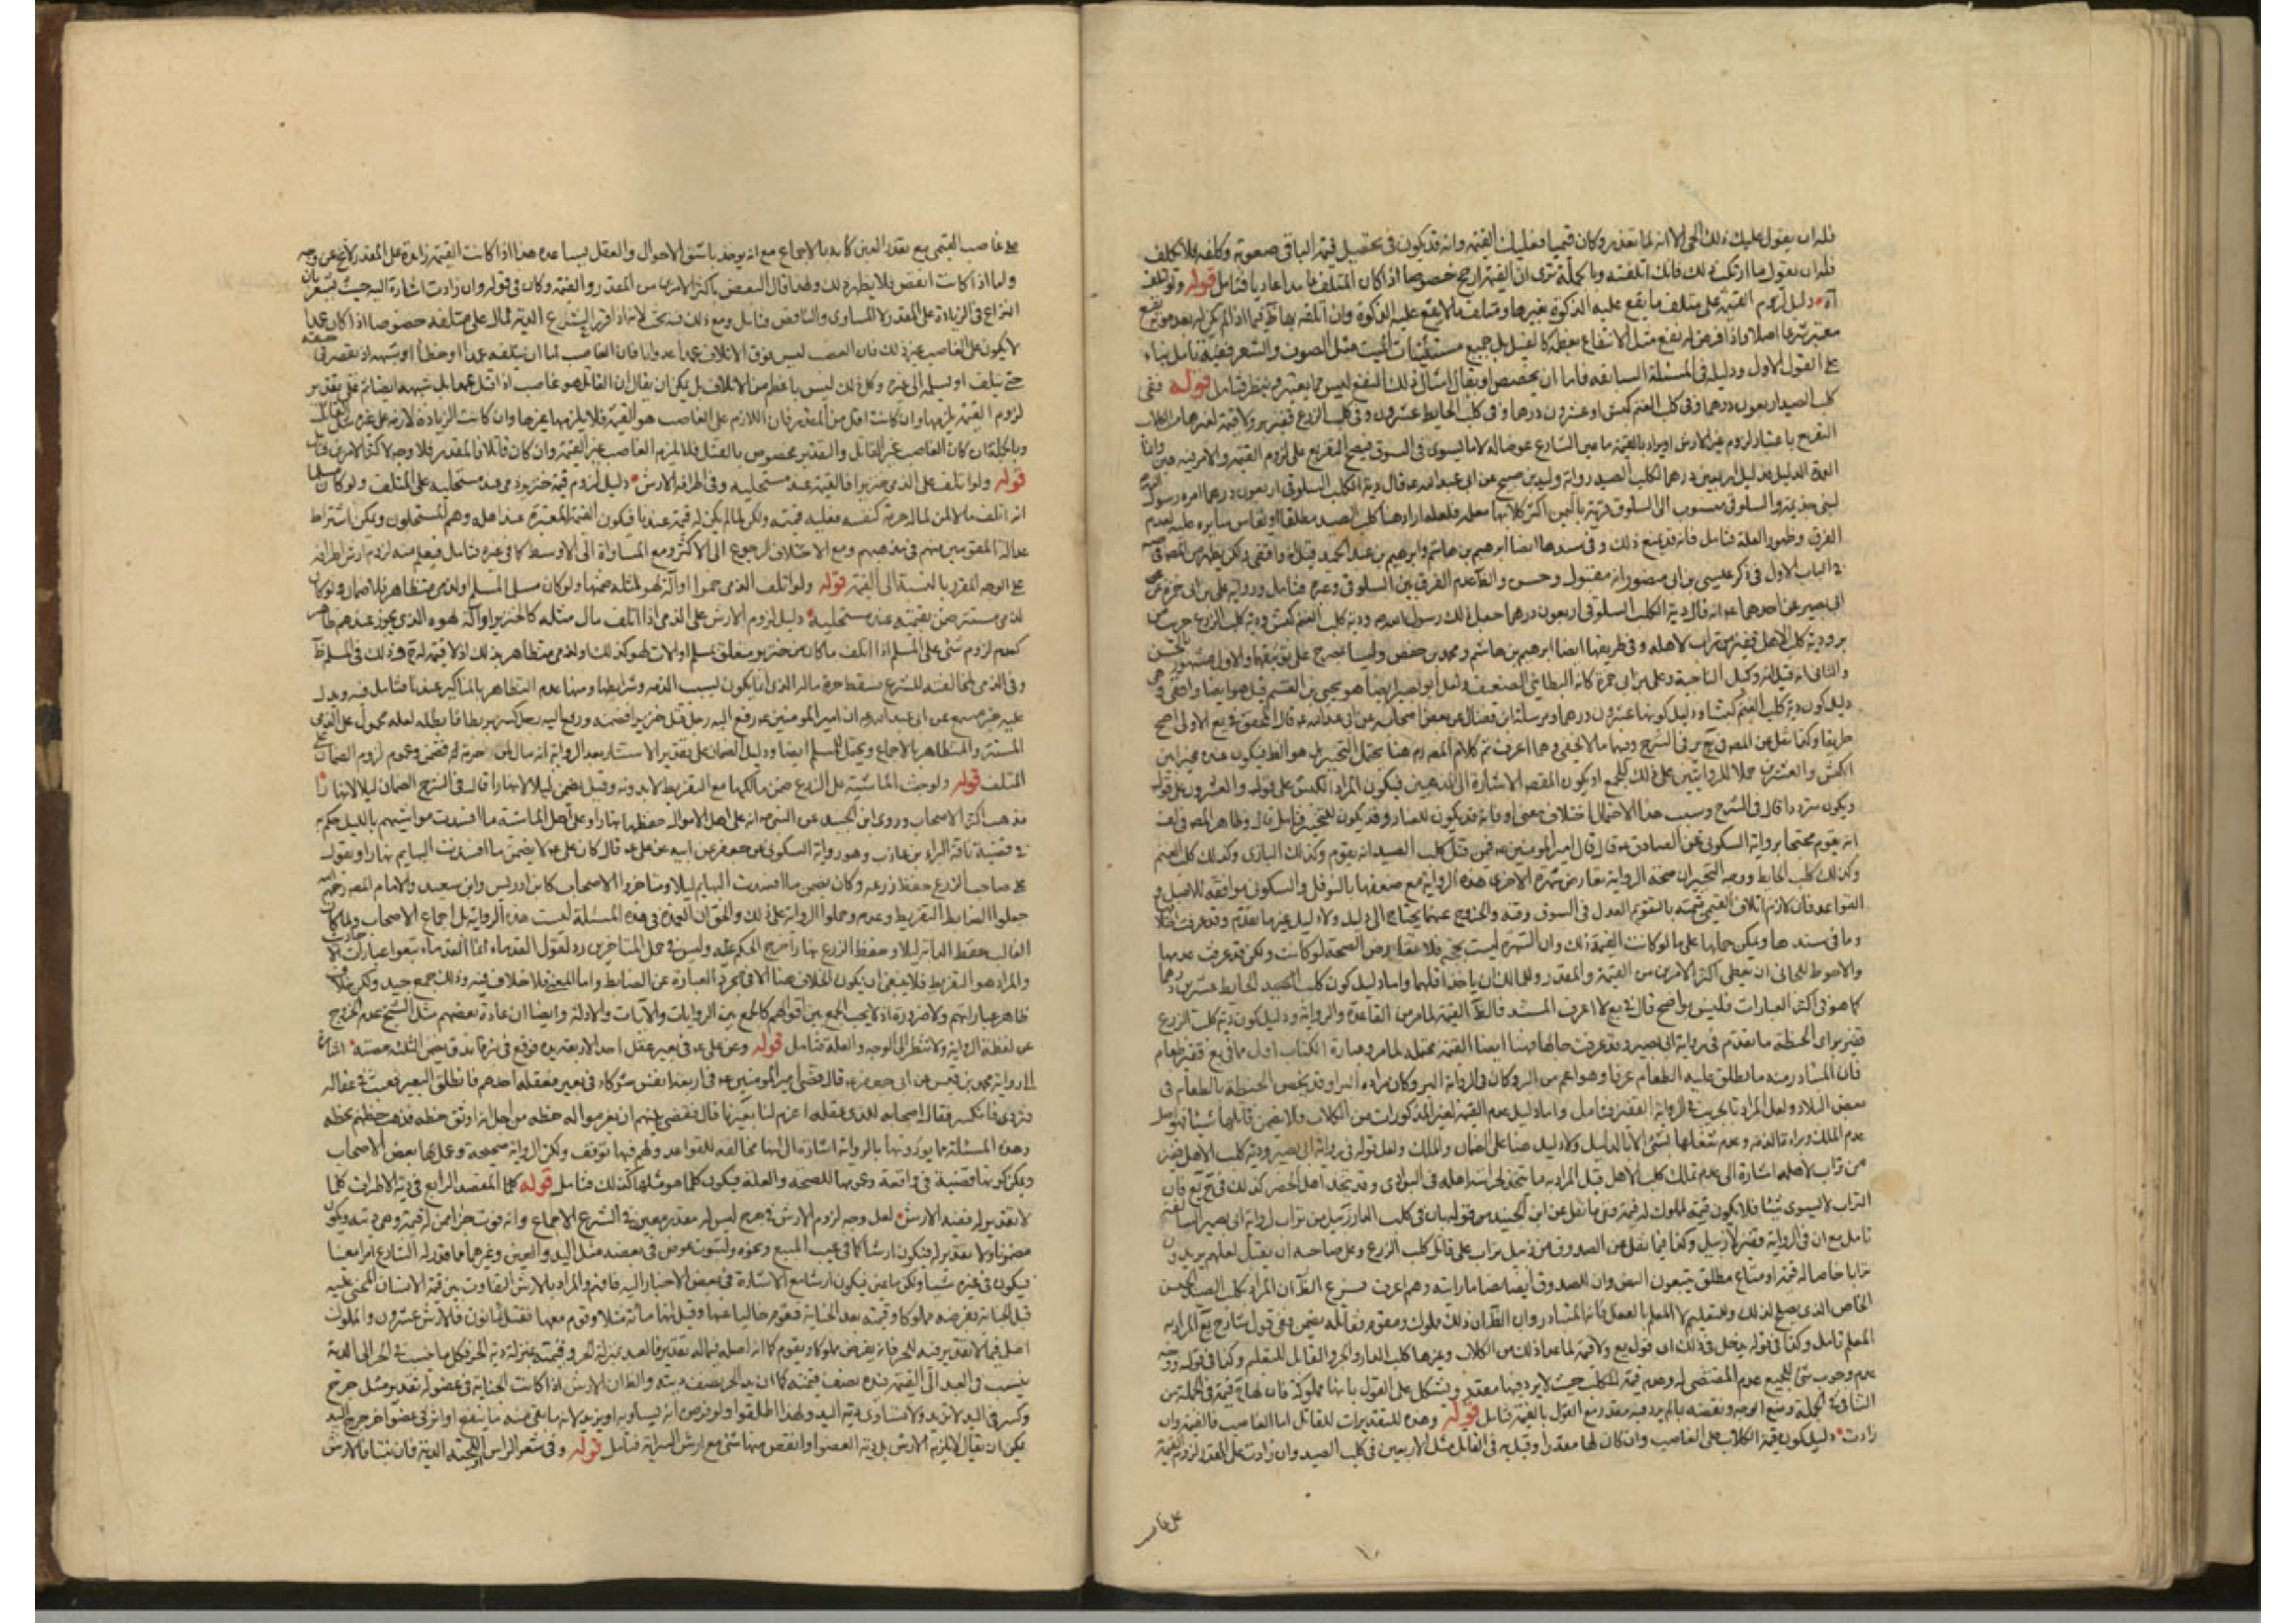 فله ان يقول عليك ذلك الا انه لما تعذر وكان قيميا فعليك القيمة وانه قد يكون في تحصيل قيمة الباقي صعوبة وكلفة فلا يكلف
فله ان يقول ما ارتكبت ذلك فانك اتلفته وبالجملة ترى ان القيمة ارجح خصوصا اذا كان المتلف عامدا عاديا فتامل قوله ولو تلف
دليل لزوم القيمة على متلف ما يقع عليه الذكوة بغيرها ومتلف ما لا يقع عليه الذكوة وان المقصود بها
معتبر شرعا اصلا واذا فرض له نفع مثل الانتفاع بعظم كالفيل بل جميع مستثنيات الميت مثل الصوف والشعر ففيه تامل بناء
على القول الاول ودليله في المسئلة السابقة فاما ان يخصص او يقال امثال ذلك النفع ليس مما يعتبر في نظر فتامل قوله ففي
كلب الصيد اربعون درهما وفي كلب الغنم كبش او عشرون درهما وفي كلب الحايط عشرون وفي كلب الزرع قفيز بر ولا قيمة لغيرها من الكلاب
العمدة الدليل دليل اربعين درهما لكلب الصيد رواية وليد بن صبيح عن ابي عبد الله ع قال دية الكلب السلوقي اربعون درهما امر رسول الله
لبني جذيمة والسلوقي منسوب الى السلوق قرية باليمن اكثر كلابها معلمة فلعله اراد هنا كلب الصيد مطلقا او نقاس سايره عليه لعدم
الفرق وظهور العلة فتامل فانه قد يمنع ذلك وفي سندها ايضا ابرهيم بن هاشم وابرهيم بن عبد الحميد قيل انه واقفي
في الباب الاول في ذكر عيسى بن ابي منصور انه مقبول وحسن والظ عدم الفرق بين السلوقي وغيره فتامل ورواية علي بن ابي حمزة عن
ابي بصير عن احدهما ع انه قال دية الكلب السلوقي اربعون درهما جعل ذلك رسول الله ص ودية كلب الغنم كبش ودية كلب الزرع جريب من
بر ودية كلب الاهل قفيز من تراب لاهله وفي طريقها ايضا ابرهيم بن هاشم ومحمد بن حفص وليسا بمصرح على توثيقهما والاول مشهور بالحسن
والثاني انه قيل انه وكيل الناحية وعلي بن ابي حمزة كانه البطايني الضعيف ولعل ابو بصير ايضا هو يحيى بن القسم قيل هو ايضا واقفي
دليل كون دية كلب الغنم كبشا ودليل كونها عشرون درهما مرسلة ابن فضال عن بعض اصحابه عن ابي عبد الله ع قال المحقق في يع الاولى اصح
طريقا وكذا نقل عن المصنف في ير في الشرح وفيها ما لا يخفى
الكبش والعشرين حملا للروايتين على ذلك للجمع او يكون المقصود الاشارة الى المذهبين فيكون المراد الكبش على قول والعشرون على قول
ويكون مترددا قال في الشرح وسبب هذا الاحتمال اختلاف معنى او فانه قد يكون للعناد وقد يكون للتخيير فتامل
انه يقوم محتجا برواية السكوني عن الصادق ع قال قال امير المؤمنين ع فيمن قتل كلب الصيد انه يقوم وكذلك البازي وكذلك كلب الغنم
وكذلك كلب الحايط ووجه التخيير ان صحة الرواية تعارض شهرة الاخرى هذه الرواية مع ضعفها بالنوفلي والسكوني موافقة للاصل و
القواعد فان لازم اتلاف القيمي قيمته بالتقويم العدل في السوق وقته والخروج عنهما يحتاج الى دليل ولا دليل غيرها تقدم وقد عرفت
وما في سندها ويمكن حملها على ما لو كانت القيمة ذلك وان الشهرة ليست بحجة فلا تعارض الصحة لو كانت ولكن قد عرفت عدمها
والاحوط للجاني ان يعطي اكثر الامرين من القيمة والمقدر وللمالك ان ياخذ اقلهما واما دليل كون كلب الحايط عشرين درهما
كما هو في اكثر العبارات فليس بواضح قال في يع لا اعرف المستند فالظ القيمة لما مر من القاعدة والرواية ودليل كون دية كلب الزرع
قفيز بر اي الحنطة ما تقدم في رواية ابي بصير وقد عرفت حالها وهنا ايضا القيمة محتملة لما مر وعبارة الكتاب اولى مما في يع قفيز طعام
فان المتبادر منه ما يطلق عليه الطعام عرفا وهو اعم من البر وكان في الرواية البر وكان مراده البر وقد يخص الحنطة بالطعام في
بعض البلاد واما دليل عدم القيمة لغير المذكورات من الكلاب ولا يضمن قاتلها شيئا فهو اصل
عدم الملك وبراءة الذمة وعدم شغلها بشئ الا بالدليل ولا دليل هنا على الضمان والملك ولعل قوله في رواية ابي بصير ودية كلب الاهل قفيز
من تراب لاهله اشارة الى عدم تملك كلب الاهل قيل المراد به ما يتخذ لحراسة اهله في البوادي وقد يتخذه اهل الحضر كذلك
التراب لا يسوى شيئا فلا يكون قيمة لمملوك له قيمة ففي ما نقل عن ابن الجنيد من قوله بان في كلب الدار زنبيل من تراب لرواية ابي بصير السابقة
تامل مع ان في الرواية قفيز لا زنبيل وكذا فيما نقل عن الصدوق من زنبيل تراب على قاتل كلب الزرع وعلى صاحبه ان يقبل
الخاص الذي يصلح لذلك وللتعليم لا المعلم بالفعل فانه المتبادر وان الظ ان ذلك مملوك ومقوم فقاتله يضمن
المعلم تامل وكذا في قوله يدخل في ذلك اي قول يع ولا قيمة لما عدا ذلك من الكلاب وغيرها كلب الدار والجرو القابل للتعليم وكذا في قوله ووجه
عدم وجوب شئ للجميع عدم المقتضى له وعدم قيمة للكلب حيث لا يرد فيها مقدر ويشكل على القول بانها مملوكة فان لها قيمة في الجملة
قوله وهذه التقديرات للقاتل اما الغاصب فالقيمة وان
زادت دليل كون قيمة الكلاب على الغاصب وان كان لها مقدرا وقيل به في القاتل مثل الاربعين في كلب الصيد وان زادت على المقدر لزوم القيمة
على غاصب
على غاصب القيمي مع تعذر العين كانه بالاجماع مع انه يوخذ باشق الاحوال والعقل يساعده هذا اذا كانت القيمة زايدة على المقدر لا يخ عن وجه
واما اذا كانت انقص فلا يظهر ذلك ولهذا قال البعض باكثر الامرين من المقدر والقيمة وكان في قوله وان زادت اشارة اليه حيث يشعر بان
النزاع في الزيادة على المقدر لا المساوي والناقص فتامل ومع ذلك فيه بحث لانه اذا قرر الشرع الدية لمال على متلفه خصوصا اذا كان عمدا
لا يكون على الغاصب غير ذلك فان الغصب ليس فوق الاتلاف عمدا عدوانا فان الغاصب اما ان يتلفه عمدا او خطأ او شبهه او يقصر في حفظه
حتى يتلف او يسلمه الى غيره وكل ذلك ليس باعظم من الاتلاف بل يمكن ان يقال ان القاتل هو غاصب اذا قتل عمدا بل شبهه ايضا ثم على تقدير
لزوم القيمة يلزمها وان كانت اقل من المقدر فان اللازم على الغاصب هو القيمة فلا يلزمها غيرها وان كانت الزيادة لازمة على غيره مثل القاتل
وبالجملة ان كان الغاصب غير القاتل والتقدير مخصوص بالقتل فلا يلزم الغاصب غير القيمة وان كان قاتلا فالمقدر فلا وجه لاكثر الامرين فتامل
قوله ولو اتلف على الذمي خنزيرا فالقيمة عند مستحليه وفي اطرافه الارش دليل لزوم قيمة خنزير ذمي عند مستحليه على المتلف ولو كان مسلما
انه اتلف مالا لمن لماله حرمة كنفسه فعليه قيمته ولكن لما لم يكن له قيمة عندنا فيكون القيمة المعتبرة عند اهله وهم المستحلون ويمكن اشتراط
عدالة المقومين منهم في مذهبهم ومع الاختلاف الرجوع الى الاكثر ومع المساواة الى الاوسط كما في غيره تامل فيعلم منه لزوم ارش اطرافه
على الوجه المقرر بالنسبة الى القيمة قوله ولو اتلف الذمي خمرا او آلة لهو لمثله ضمنها ولو كان مسلما او لذمي متظاهر فلا ضمان ولو كان
لذمي مستتر ضمن بقيمته عند مستحليه دليل لزوم الارش على الذمي اذا اتلف مال مثله كالخنزير او آلة لهوه الذي يجوز عندهم ظاهر
كعدم لزوم شئ على المسلم اذا اتلف ما كان من خنزير متعلق بمسلم او آلات لهو كذلك او لذمي متظاهر بذلك اذ لا قيمة له وذلك في المسلم ظ
وفي الذمي لمخالفته للشرع فسقط حرمة ماله الذي انما يكون لسبب الذمة وشرايطها ومنها عدم التظاهر بالمناكير عندنا فتامل فيه ويدل
عليه خبر مسمع عن ابي عبد الله ع ان امير المؤمنين ع رفع اليه رجل قتل خنزيرا فضمنه ورفع اليه رجل كسر بربطا فابطله لعله محمول على الذمي
المستتر والمتظاهر بالاجماع ويحتمل المسلم ايضا ودليل الضمان على تقدير الاستتار بعد الرواية انه مال لمن حرمة له فيضمن وعموم لزوم الضمان على
المتلف قوله ولو جنت الماشية على الزرع ضمن مالكها مع التفريط لا بدونه وقيل يضمن ليلا لا نهارا قال في الشرح الضمان ليلا لا نهارا
مذهب اكثر الاصحاب وروى ابن الجنيد عن النبي ص انه على اهل الاموال حفظها نهارا وعلى اهل الماشية ما افسدت مواشيهم بالليل حكم به
في قضية ناقة البراء بن عازب وهو رواية السكوني عن جعفر عن ابيه عن علي ع قال كان علي ع لا يضمن ما افسدت البهايم نهارا ويقول
على صاحب الزرع حفظ زرعه وكان يضمن ما افسدت البهايم ليلا ومتاخروا الاصحاب كابن ادريس وابن سعيد والامام المصنف رحمهم الله
جعلوا الضابط التفريط وعدمه وحملوا الرواية على ذلك والحق ان العمدة في هذه المسئلة ليست هذه الرواية بل اجماع الاصحاب ولما كان
الغالب حفظ الدابة ليلا وحفظ الزرع نهارا خرج الحكم عليه وليس في حمل المتاخرين رد لقول القدماء انما القدماء تبعوا عبارات الاحاديث
والمراد هو التفريط فلا ينبغي ان يكون الخلاف هنا الا في مجرد العبارة عن الضابط واما المعنى فلا خلاف فيه وذلك جمع جيد ولكن
ظاهر عباراتهم ولا ضرورة اذ لا يجب الجمع بين اقوالهم كالجمع بين الروايات والآيات والادلة وايضا ان عادة بعضهم مثل الشيخ عدم الخروج
عن لفظة الرواية ولا تنظر الى الوجه والعلة فتامل قوله وعن علي ع في بعير عقل احد الاربعة يده فوقع في بئر فاندق يضمن الثلثة حصته اشارة
الى رواية محمد بن قيس عن ابي جعفر ع قال قضى امير المؤمنين ع في اربعة انفس شركاء في بعير فعقله احدهم فانطلق البعير فعبث في عقاله
فتردى فانكسر فقال اصحابه للذي عقله اغرم لنا بعيرنا قال فقضى بينهم ان يغرموا له حظه من اجل انه اوثق حظه فذهب حظهم بحظه
وهذه المسئلة مما يوردونها بالرواية اشارة الى انها مخالفة للقواعد ولهم فيها توقف ولكن الرواية صحيحة وعمل بها بعض الاصحاب
ويمكن كونها قضية في واقعة وعمومها للصحة والعلة فيكون كلما هو مثلها كذلك فتامل قوله كلما المقصد الرابع في دية الاطراف كلما
لا تقدير له ففيه الارش لعل وجه لزوم الارش في جرح ليس له مقدر معين في الشرع الاجماع وانه فوت جزء ممن له قيمة وهو ديته ويكون
مضمونا ولا تقدير له فيكون ارشا كما في عيب المبيع ونحوه ولثبوت عوض في بعضه مثل اليد والعين وغيرهما مما قرر له الشارع امرا معينا
فيكون في غيره شيئا ولكن ما عين فيكون ارشا مع الاشارة في بعض الاخبار اليه فافهم والمراد بالارش التفاوت بين قيمة الانسان المجني عليه
قبل الجناية بفرضه مملوكا وقيمته بعد الجناية فيقوم خاليا عنها وقيل انها مائة مثلا وقوم معها فقيل ثمانون فالارش عشرون والمملوك
اصل فيما لا تقدير فيه للحر فانه يفرض مملوكا ويقوم كما انه اصل فيما له تقدير فالعبد بمنزلة الحر وقيمته بمنزلة دية الحر فكل ما ينسب في الحر الى الدية
ينسب في العبد الى القيمة فيده نصف قيمته كما ان يد الحر نصف ديته والظ ان الارش اذا كانت الجناية في عضو له تقدير مثل جرح
وكسر في اليد لا تزيد ولا تساوي دية اليد ولهذا اطلقوا ولو فرض انه يساويه او يزيد
يمكن ان يقال لا يلزم الارش بل دية العضو او انقص منها شئ مع ارش السراية فتامل قوله وفي شعر الراس او اللحية الدية فان نبتا فالارش